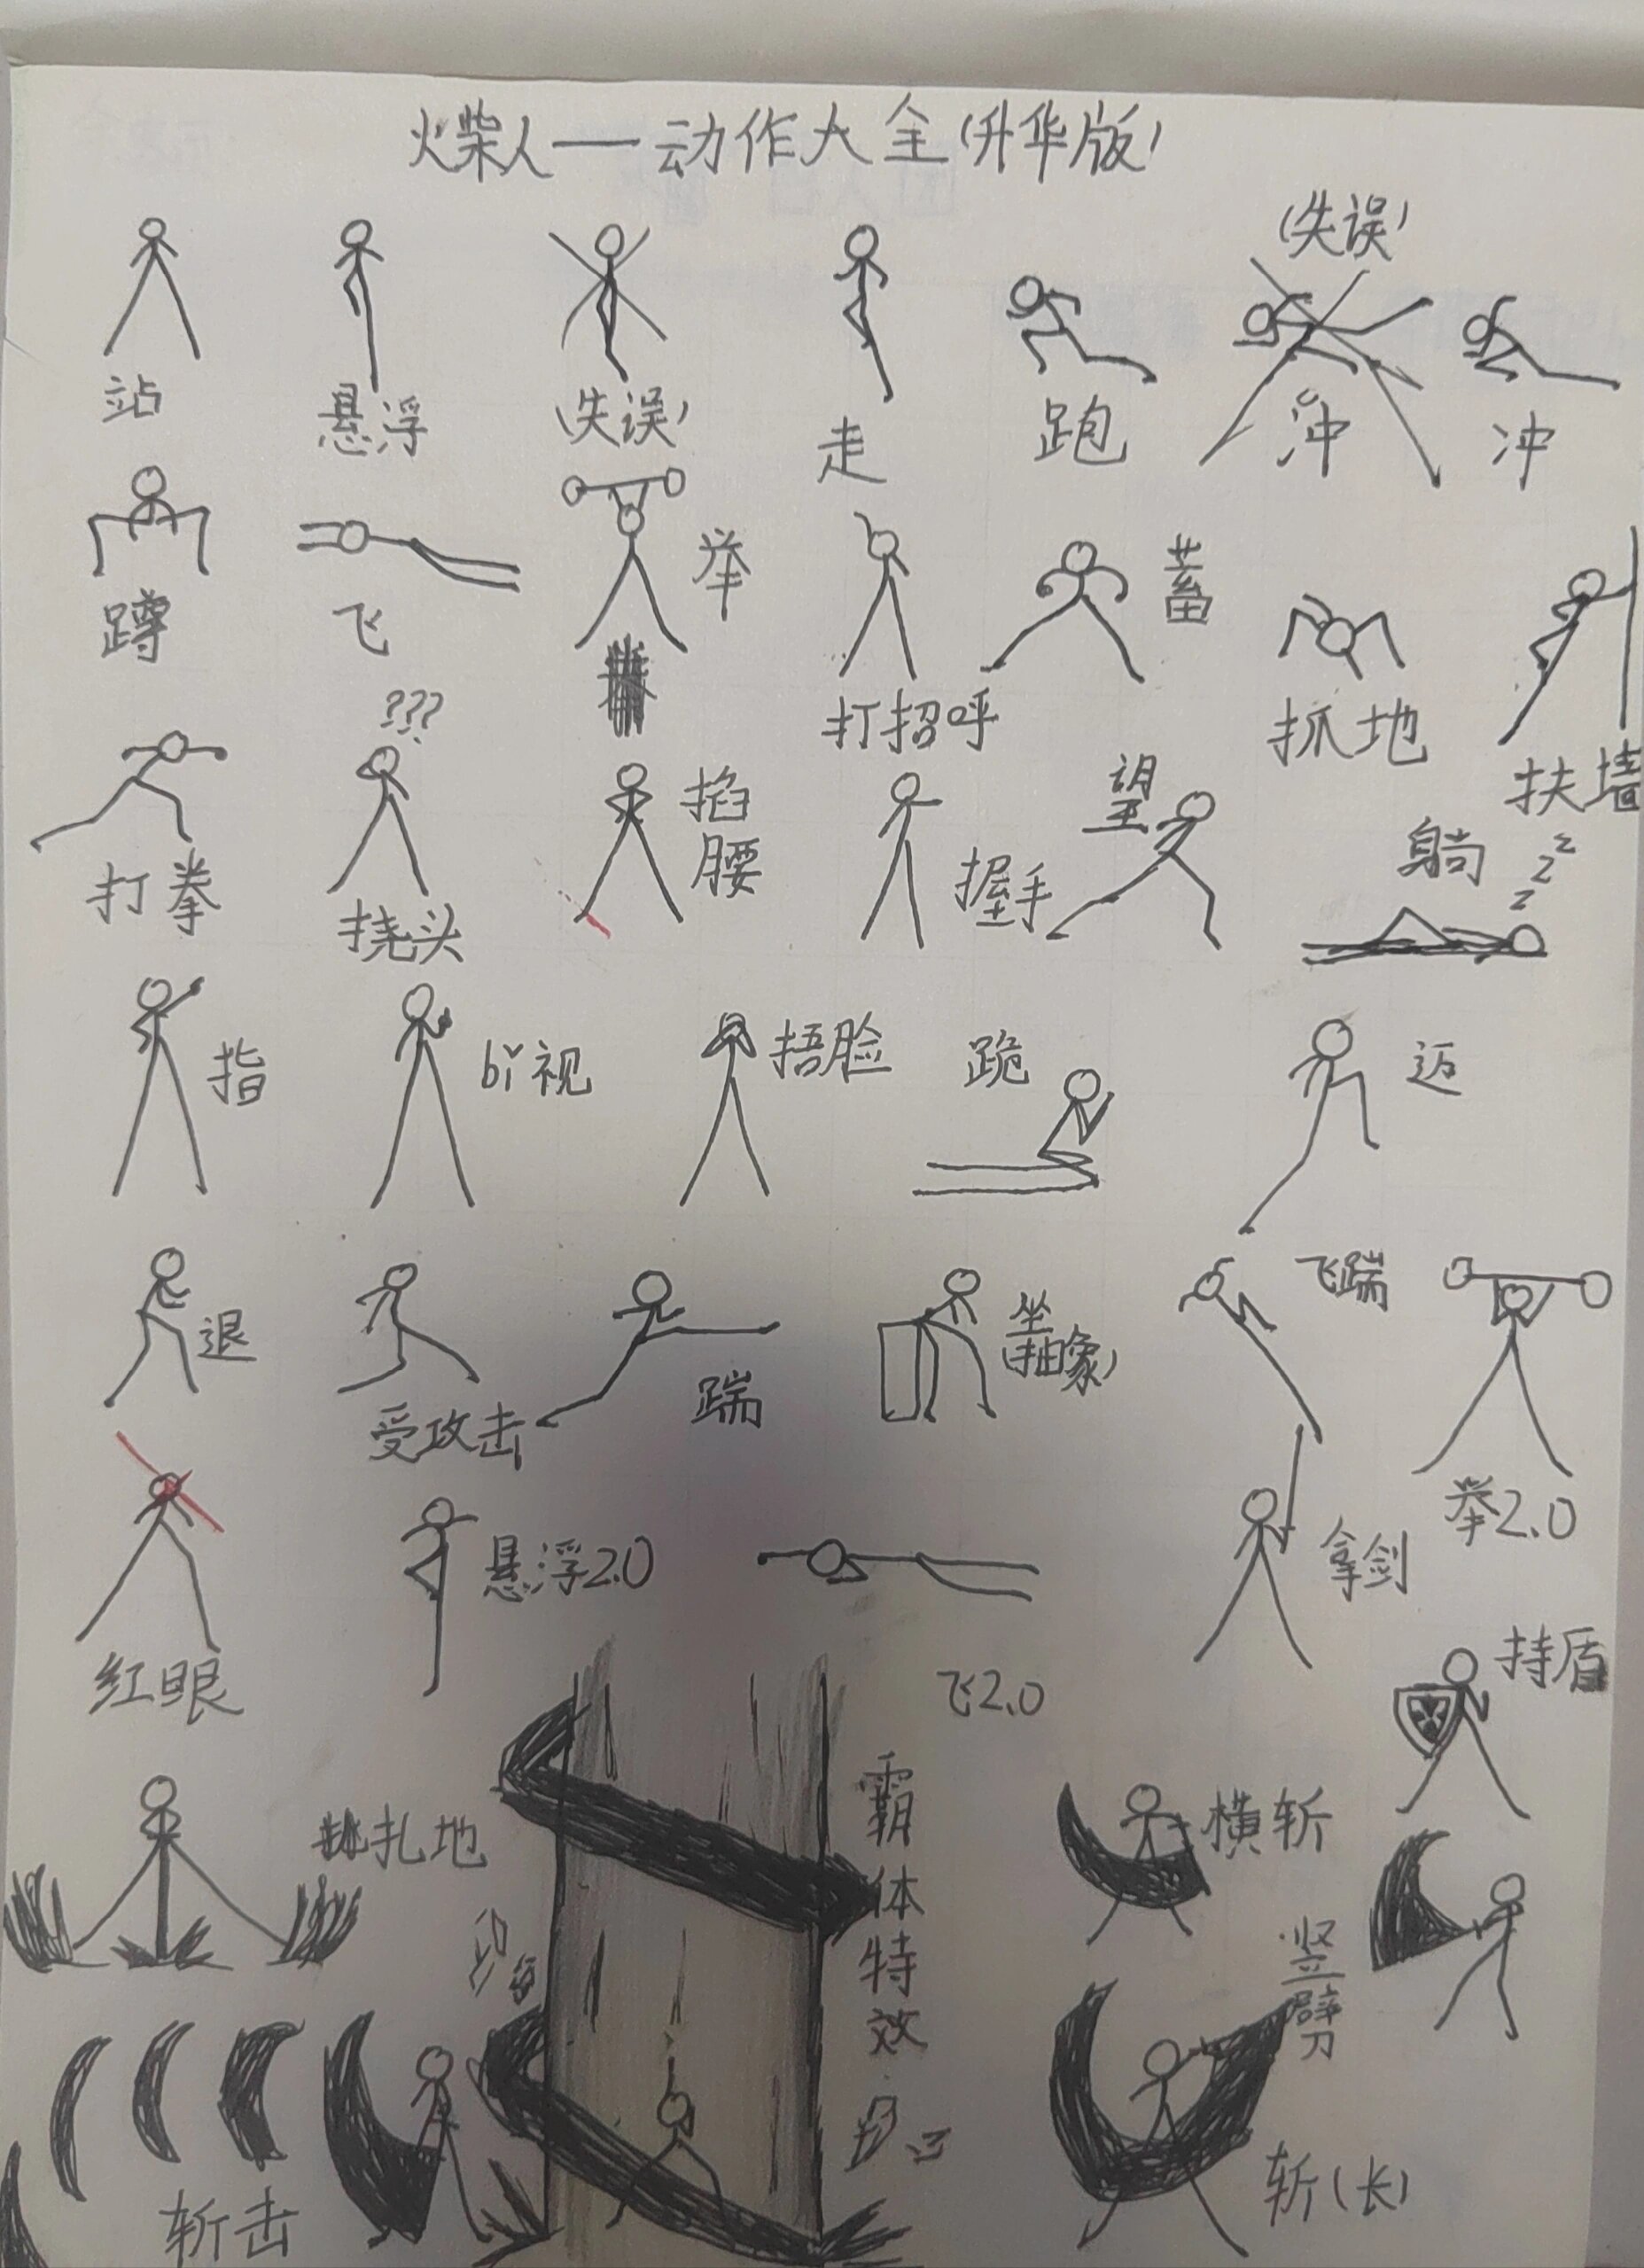 火柴人——动作大全(升华版)
(失误)
站
悬浮
(失误)
走
跑
冲
冲
蹲
飞
举
打招呼
蓄
抓地
扶墙
打拳
???
挠头
掐腰
握手
望
躺
zzz
指
bǐ视
捂脸
跪
迈
退
受攻击
踹
坐
(抽象)
飞踹
举2.0
红眼
悬浮2.0
飞2.0
拿剑
持盾
扎地
霸体特效
横斩
竖劈
斩击
斩(长)